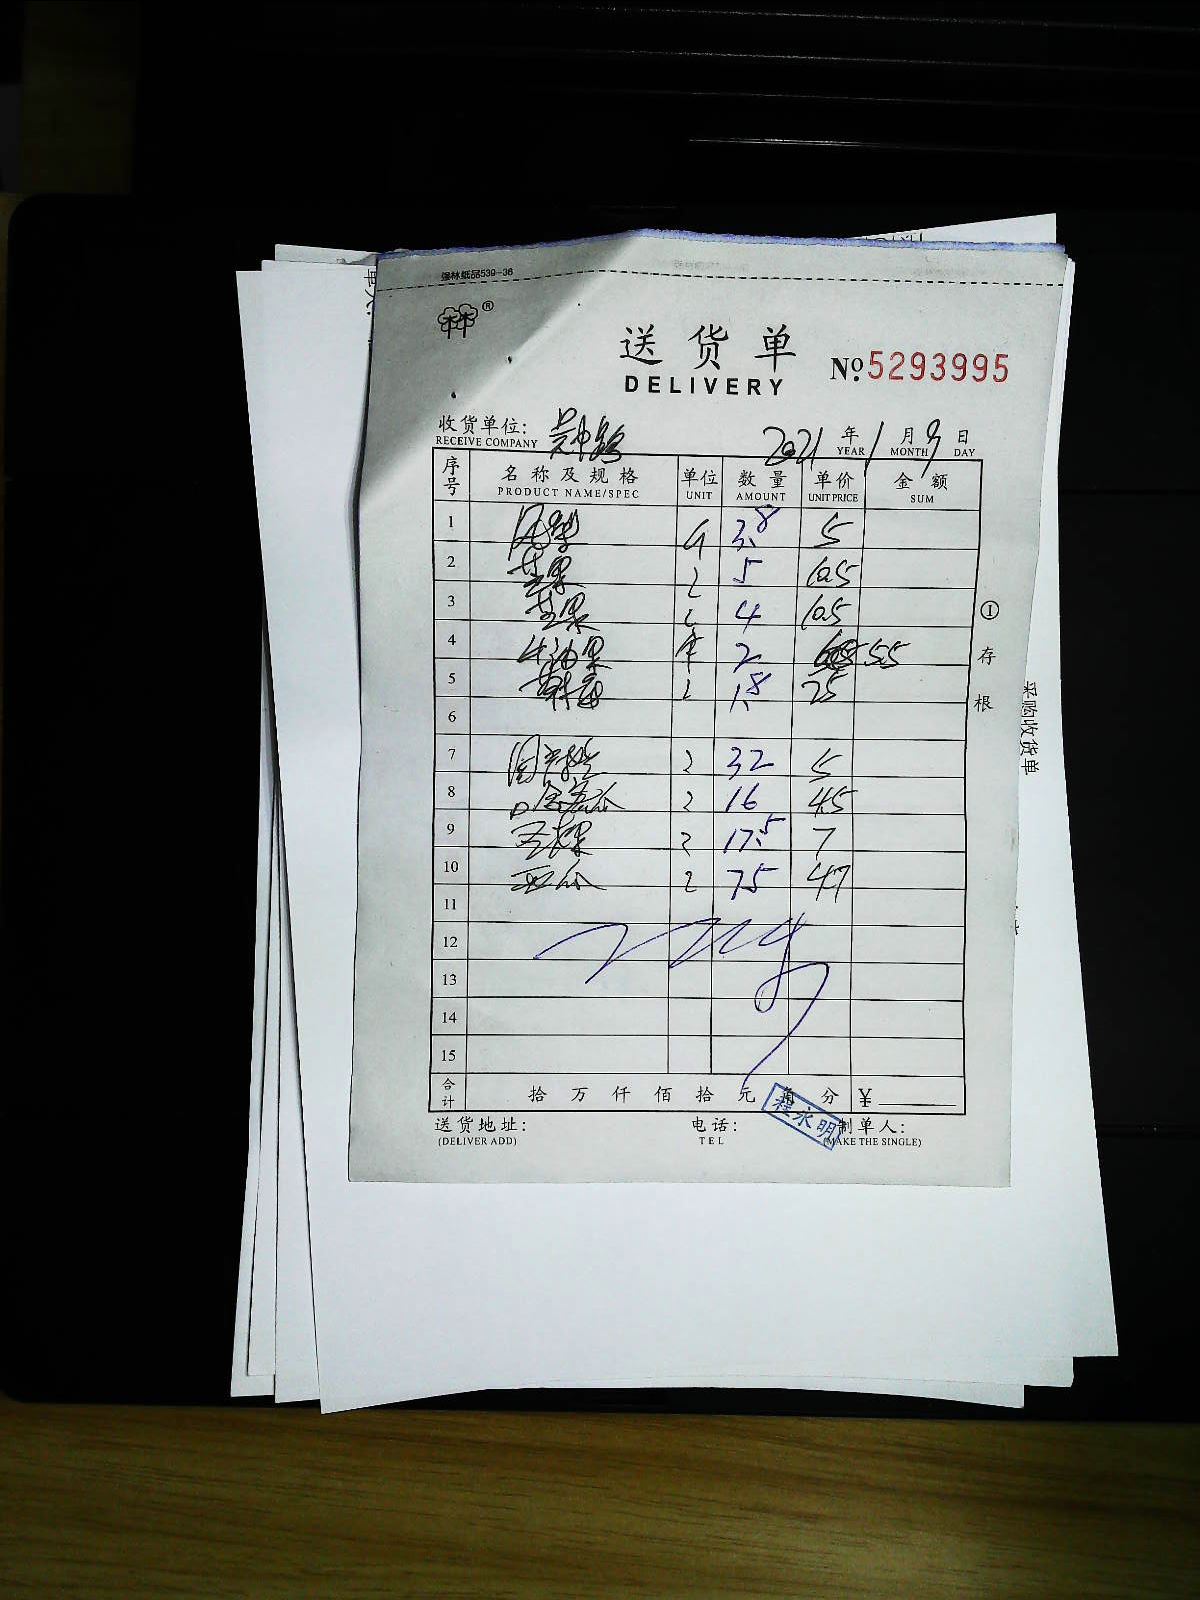 强林纸品539-36
林®
送货单
DELIVERY
№ 5293995
收货单位:
RECEIVE COMPANY
2021年1月9日
YEAR MONTH DAY
序号 名称及规格 单位 数量 单价 金额
PRODUCT NAME/SPEC UNIT AMOUNT UNIT PRICE SUM
1 3.8 5
2 芒果 5 10.5
3 芒果 4 10.5
4 牛油果 2 55
5 1.8 25
6
7 32 5
8 哈密瓜 16 4.5
9 17.5 7
10 西瓜 75 4.7
11
12
13
14
15
合计 拾 万 仟 佰 拾 元 角 分 ¥
程永明
送货地址: 电话: 制单人:
(DELIVER ADD) TEL (MAKE THE SINGLE)
① 存根
采购收货单